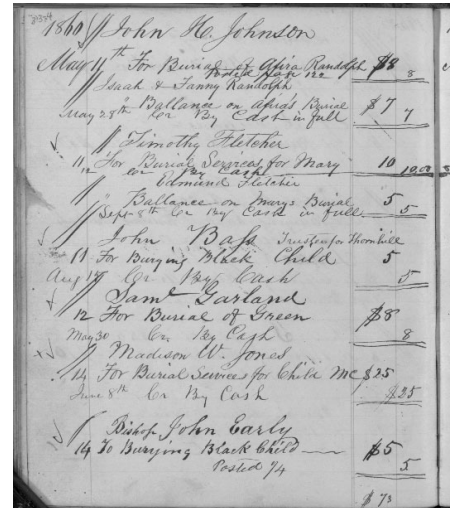 1860 John H. Johnson
May 11th For Burial of Afira Randolph $8 8
Posted Page 122
Isaah & Fanny Randolph
" Ballance on Afira's Burial $7
May 28th Cr By Cash in full 7
Timothy Fletcher
11 For Burial Services for Mary 10
12 Cr By Cash 10.00
Edmund Fletcher
" Ballance on Marys Burial 5
Sept 8th Cr By Cash in full 5
John Bass Trustee for Thornhill
11 For Burying Black Child 5
Aug Cr By Cash 5
Saml Garland
12 For Burial of Green $8
May 30 Cr By Cash 8
Madison W. Jones
14 For Burial Services for Child $25
June 8th Cr By Cash $25
Bishop John Early
14 To Burying Black Child $5
Posted 1/4 5
$73